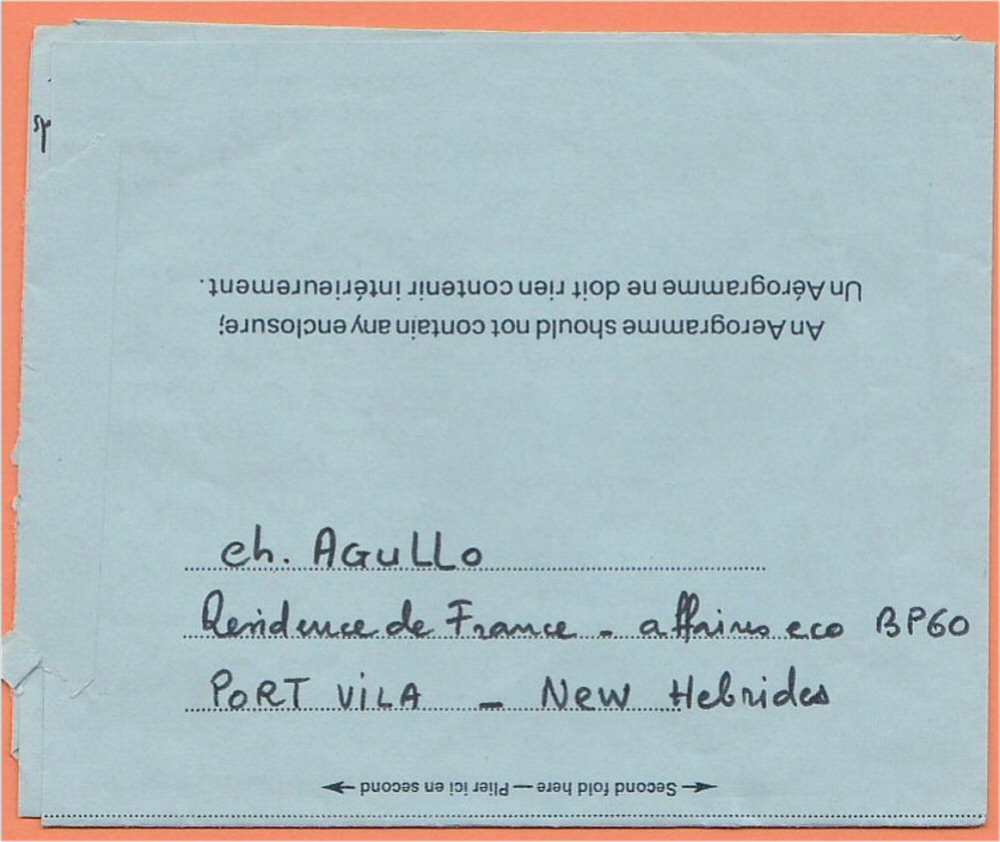 An Aerogramme should not contain any enclosure;
Un Aérogramme ne doit rien contenir intérieurement.
ch. AGULLO
Residence de France - affaires eco BP60
PORT VILA - New Hebrides
Second fold here — Plier ici en second